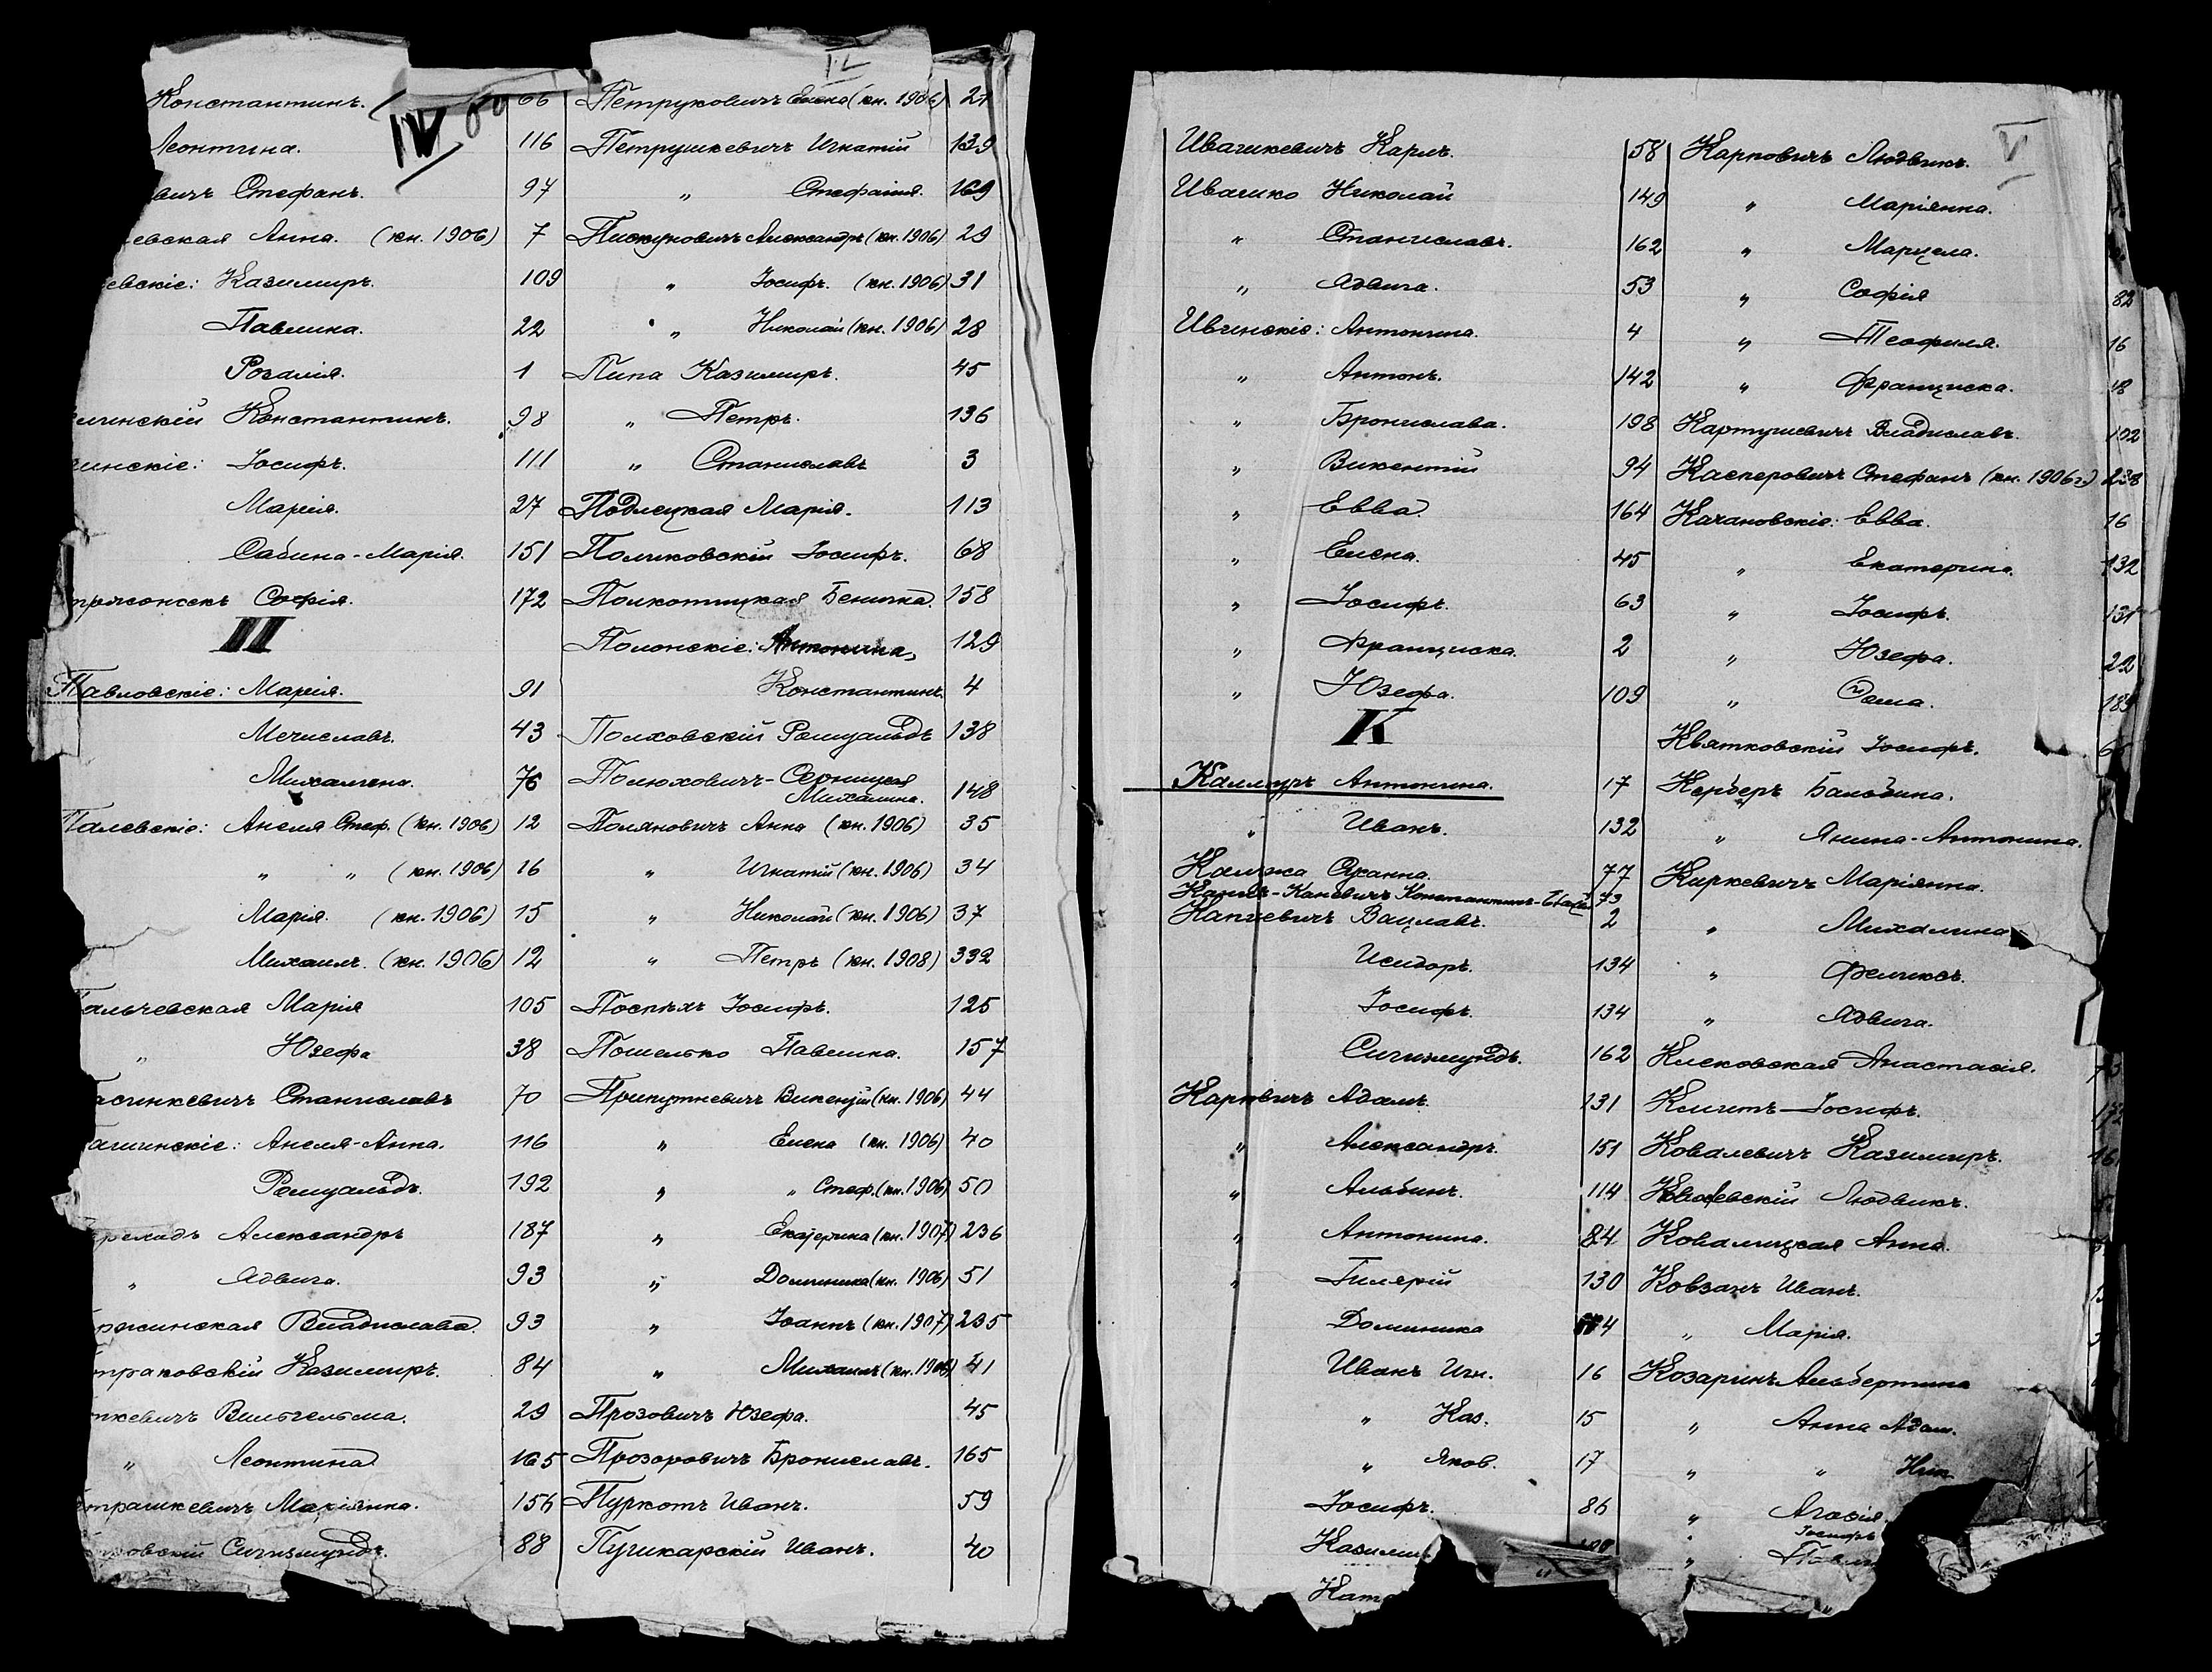 IV
Константинъ. 66
Леонтина. 116
вичъ Стефанъ. 97
евская Анна. (кн. 1906) 7
евскіе: Казимиръ. 109
Павлина. 22
Розалія. 1
инскій Константинъ. 98
инскіе: Іосифъ. 111
Марія. 27
Сабина-Марія. 151
Софія. 172
П
Павловскіе: Марія. 91
Мечиславъ. 43
Михалина. 76
Палевскіе: Анеля Стеф. (кн. 1906) 12
" " (кн. 1906) 16
Марія. (кн. 1906) 15
Михаилъ. (кн. 1906) 12
альчевская Марія 105
" Юзефа 38
асинкевичъ Станиславъ 70
ашинскіе: Анеля-Анна. 116
Ромуальдъ. 192
Александръ 187
" Ядвига. 93
ржсинская Владислава. 93
траковскій Казимиръ. 84
ткевичъ Вильгельма. 29
" Леонтина 165
трашкевичъ Маріянна. 156
овскій Сигизмундъ. 88
IV
Петруковичъ Елена (кн. 1906) 21
Петрушкевичъ Игнатій 139
" Стефанія. 169
Пискуновичъ Александръ (кн. 1906) 29
" Іосифъ. (кн. 1906) 31
" Николай (кн. 1906) 28
Пипа Казимиръ. 45
" Петръ. 136
" Станиславъ 3
Подлецкая Марія. 113
Поликовскій Іосифъ. 68
Полкотицкая Бенигна. 158
Полонскіе: Антонина, 129
Константинъ. 4
Полховскій Ромуальдъ 138
Полюховичъ-Серницкая
Михалина. 148
Поляновичъ Анна (кн. 1906) 35
" Игнатій (кн. 1906) 34
" Николай (кн. 1906) 37
" Петръ (кн. 1908) 332
Поспѣхъ Іосифъ. 125
Пошелько Павлина. 157
Припутневичъ Викентій (кн. 1906) 44
" Елена (кн. 1906) 40
" " Стеф. (кн. 1906) 50
" Екатерина (кн. 1907) 236
" Доминика (кн. 1906) 51
" Іоаннъ (кн. 1907) 235
" Михаилъ (кн. 1906) 41
Прозовичъ Юзефа. 45
Прозоровичъ Брониславъ. 165
Пуркотъ Иванъ. 59
Пушкарскій Иванъ. 40
Ивашкевичъ Карлъ. 58
Ивашко Николай 149
" Станиславъ. 162
" Ядвига. 53
Ивинскіе: Антонина. 4
" Антонъ. 142
" Бронислава. 198
" Викентій 94
" Евва. 164
" Елена. 45
" Іосифъ. 63
" Франциска. 2
" Юзефа. 109
К
Калмуръ Антонина. 17
" Иванъ. 132
Камжа Жанна. 77
Константинъ 73
Капцевичъ Вацлавъ. 2
Исидоръ. 134
Іосифъ. 134
Сигизмундъ. 162
Карповичъ Адамъ. 131
" Александръ. 151
" Альбинъ. 114
" Антонина. 84
" Гилярій 130
Доминика
Иванъ Игн. 16
" Каз. 15
" Яков. 17
Іосифъ. 86
Казими
Кат
V
Карповичъ Людвикъ.
" Маріянна.
" Марцела.
" Софія 82
" Теофиля. 16
" Франциска. 18
Картушевичъ Владиславъ. 102
Касперовичъ Стефанъ (кн. 1906 г.) 238
Качановскіе: Евва. 16
" Екатерина. 132
" Іосифъ. 131
" Юзефа. 22
" 189
Квятковскій Іосифъ.
Керберъ Бальбина.
" Янина-Антонина.
Киркевичъ Маріянна.
" Михалина
" Феликсъ.
" Ядвига.
Клековская Анастасія. 73
Климтъ-Іосифъ. 172
Ковалевичъ Казимиръ. 16
Ковалевскій Людвикъ.
Ковалицкая Анна.
Ковзанъ Иванъ.
" Марія.
Козаринъ Альбертина
" Анна Адам.
" " Ник
" Агафія.
" Іосифъ
" Павл